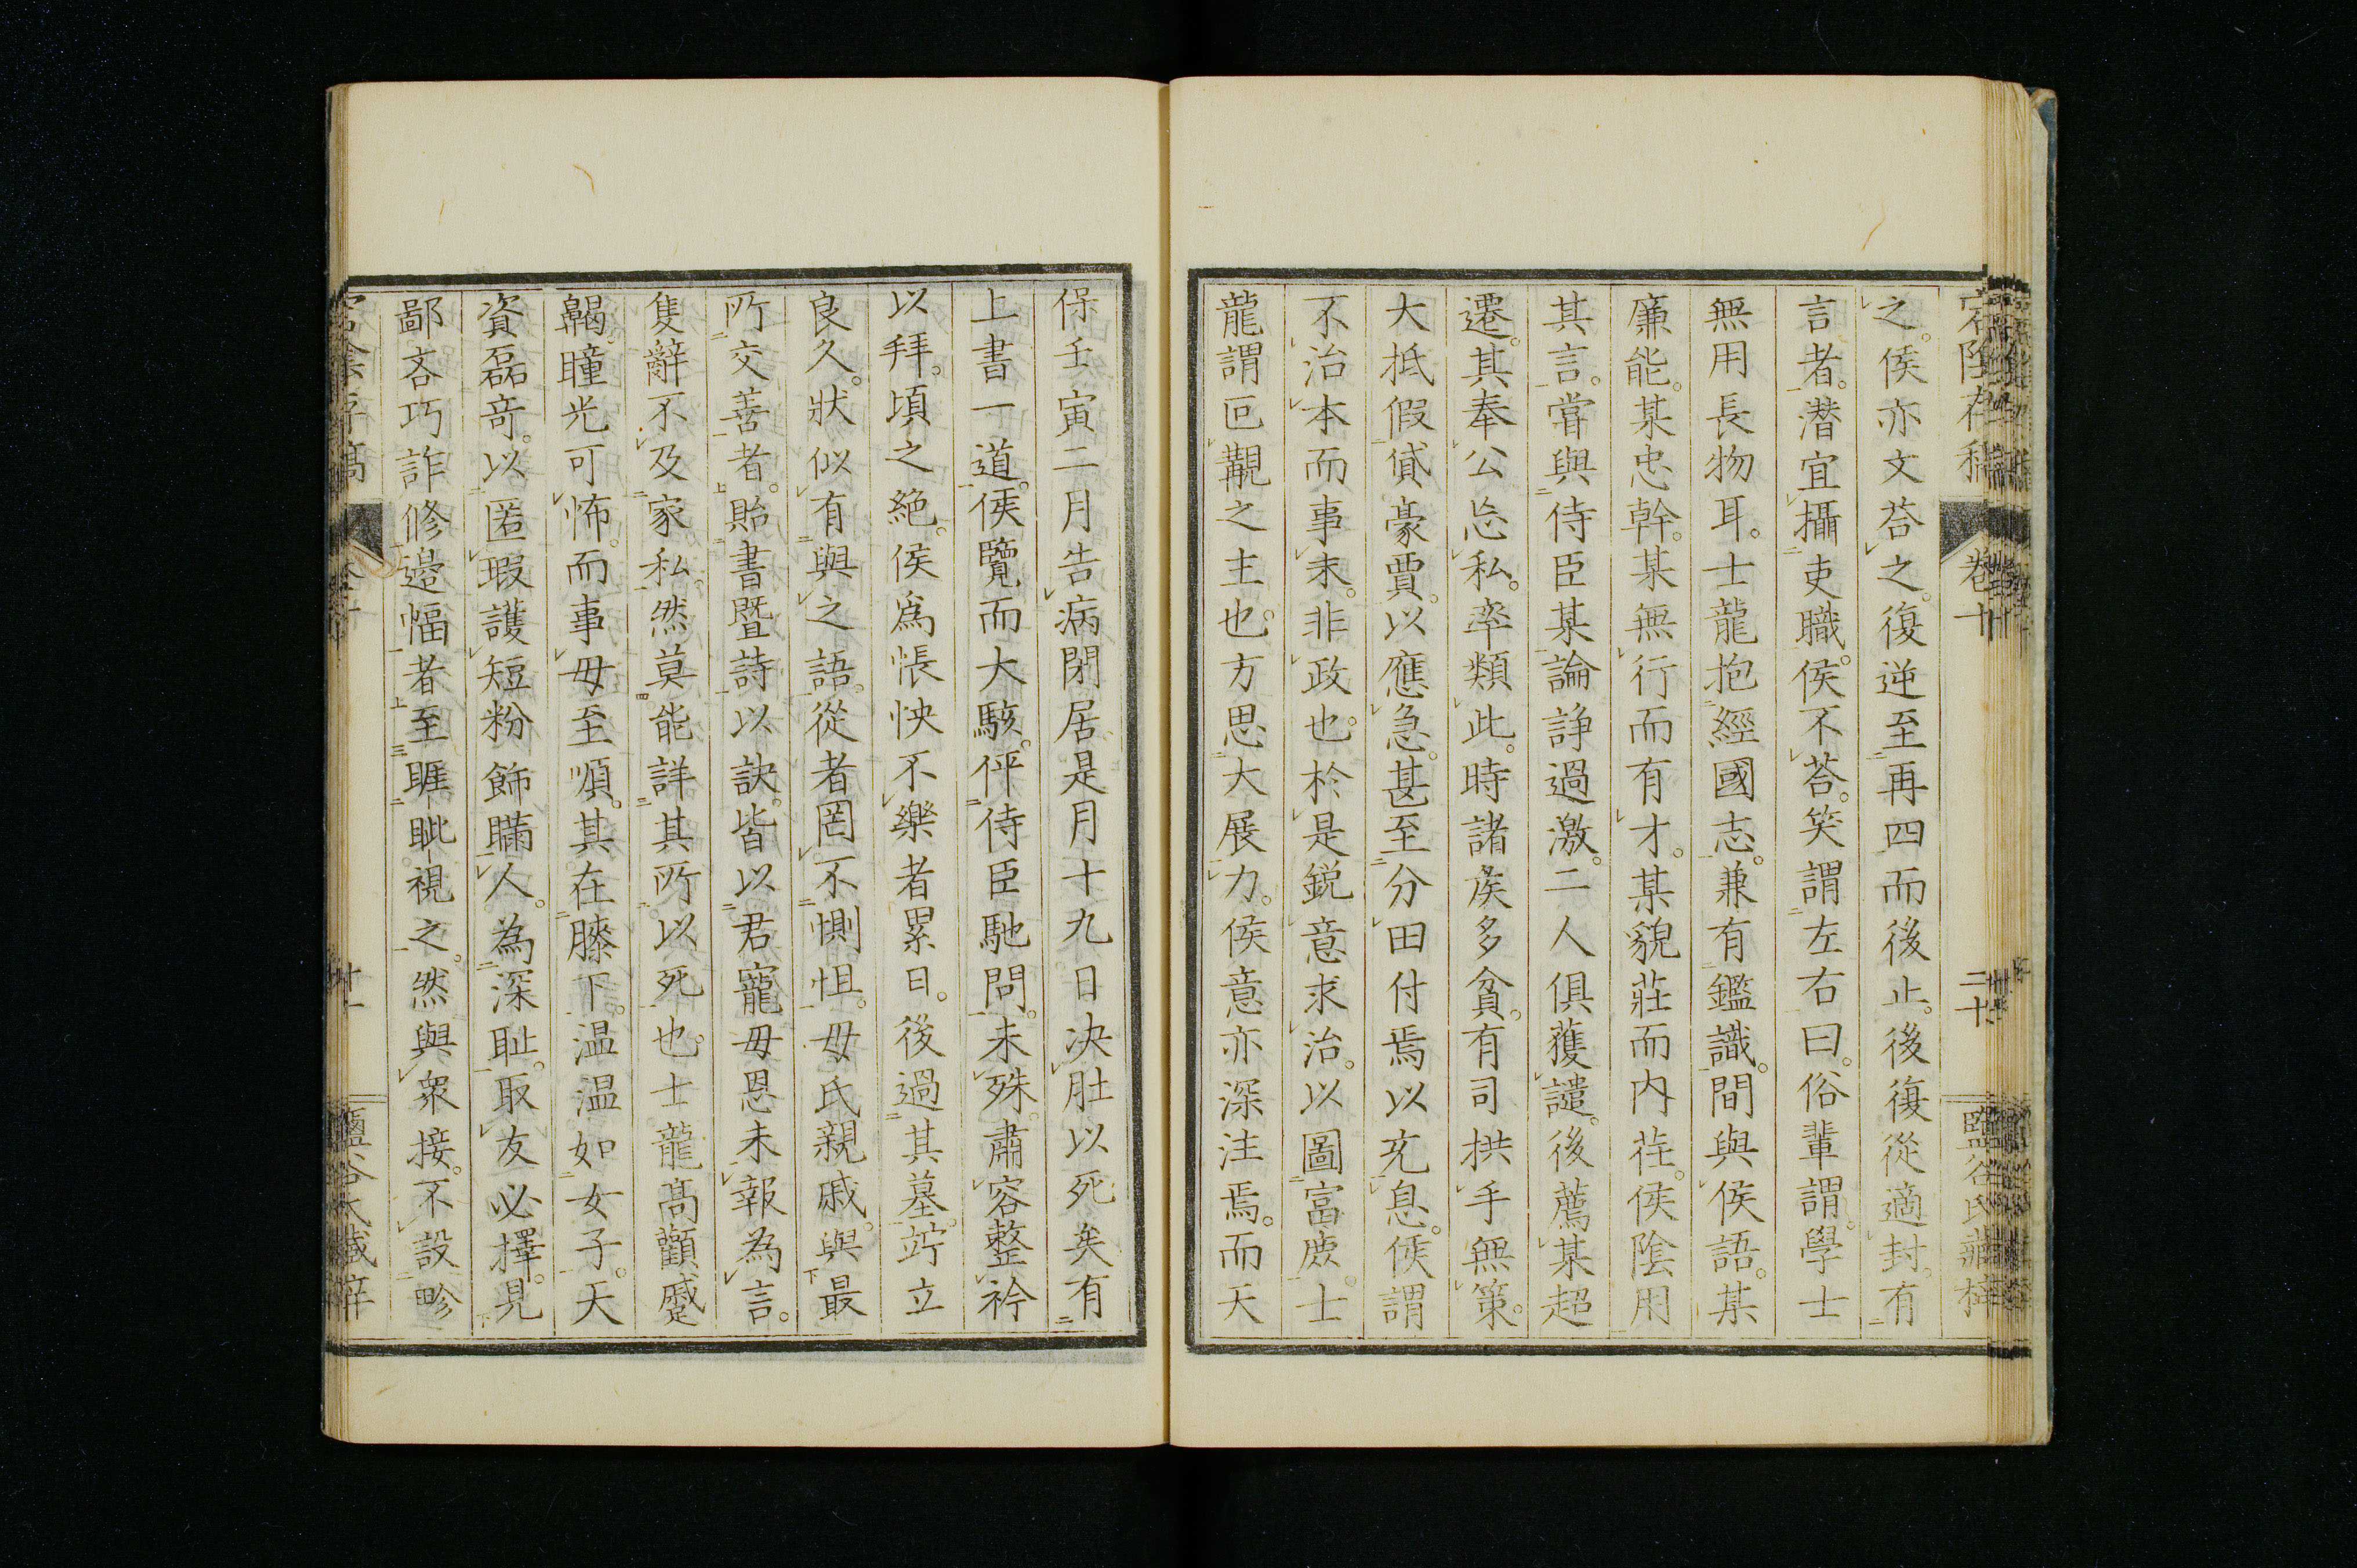 宕陰存稿 卷十 二十 鹽谷氏藏梓
之。侯亦文荅之。復逆至再四而後止。後復從適封。有
言者。潛宜攝吏職。侯不荅。笑謂左右曰。俗輩謂。學士
無用長物耳。士龍抱經國志。兼有鑑識。間與侯語。某
廉能。某忠幹。某無行而有才。某貌莊而内荏。侯陰用
其言。嘗與侍臣某論諍過激。二人俱獲譴。後薦某超
遷。其奉公忘私。率類此。時諸侯多貧。有司拱手無策。
大抵假貸豪賈。以應急。甚至分田付焉以充息。侯謂
不治本而事末。非政也。於是鋭意求治。以圖富庶。士
龍謂叵覯之主也。方思大展力。侯意亦深注焉。而天
保壬寅二月告病閉居是月十九日決肚以死矣有
上書一道。侯覽而大駭。伻侍臣馳問。未殊。肅容整衿
以拜。頃之絶。侯爲悵怏不樂者累日。後過其墓。竚立
良久。狀似有與之語。從者罔不惻怛。母氏親戚。與最
所交善者。貽書暨詩以訣。皆以君寵母恩未報為言。
隻辭不及家私。然莫能詳其所以死也。士龍高顴蹙
齃。瞳光可怖。而事母至順。其在膝下。温温如女子。天
資磊竒。以匿瑕護短粉飾瞞人。為深耻。取友必擇。見
鄙吝巧詐修邉幅者至睚眦視之。然與衆接。不設畛
宕陰存稿 卷十 廿一 鹽谷氏藏梓